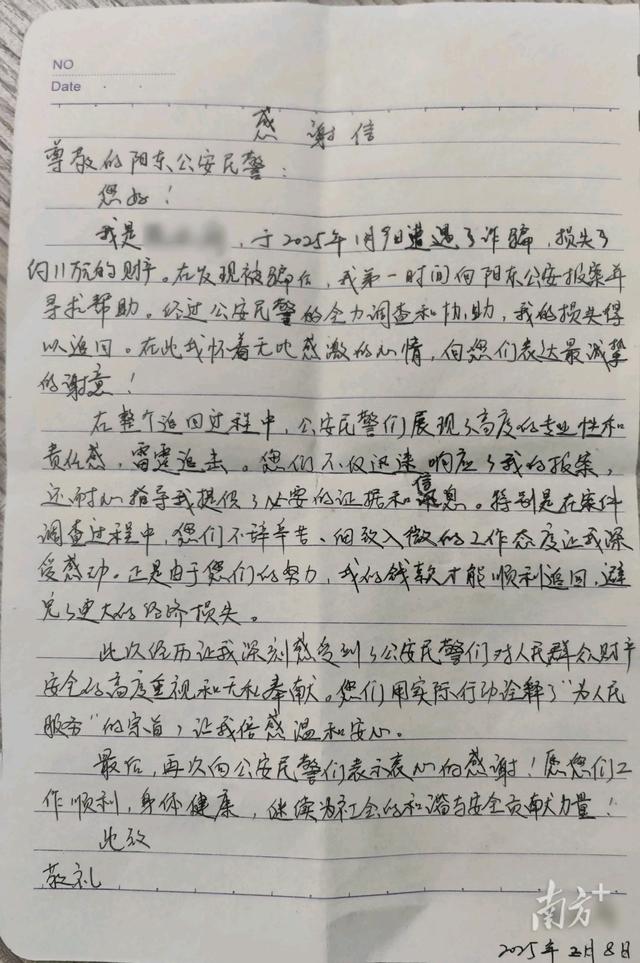 NO
Date
感谢信
尊敬的阳东公安民警：
您好！
我是 ，于2025年1月9日遭遇了诈骗，损失了
约11万元的财产。在发现被骗后，我第一时间向阳东公安报案并
寻求帮助。经过公安民警的全力调查和协助，我的损失得
以追回。在此我怀着无比感激的心情，向您们表达最诚挚
的谢意！
在整个追回过程中，公安民警们展现了高度的专业性和
责任感，雷霆追击。您们不仅迅速响应了我的报案，
还耐心指导我提供了必要的证据和信息。特别是在案件
调查过程中，您们不辞辛苦、细致入微的工作态度让我深
受感动。正是由于您们的努力，我的钱款才能顺利追回，避
免了更大的经济损失。
此次经历让我深刻感受到了公安民警们对人民群众财产
安全的高度重视和无私奉献。您们用实际行动诠释了“为人民
服务”的宗旨，让我倍感温和安心。
最后，再次向公安民警们表示衷心的感谢！愿您们工
作顺利，身体健康，继续为社会的和谐与安全贡献力量！
此致
敬礼
南方+
2025年2月8日